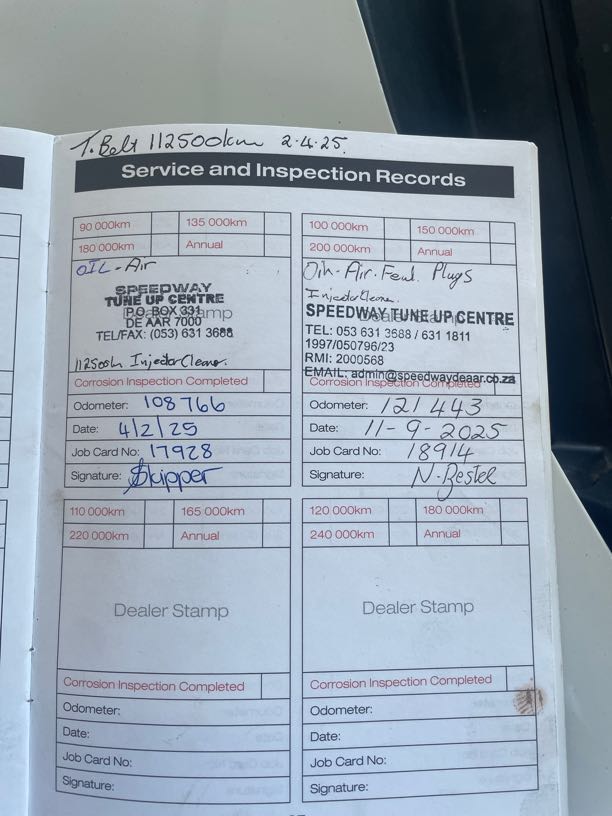 T. Belt 112500km 2.4.25.
Service and Inspection Records
90 000km 135 000km
180 000km Annual
OIL - Air
SPEEDWAY
TUNE UP CENTRE
P.O. BOX 331
DE AAR 7000
TEL/FAX: (053) 631 3688
Dealer Stamp
Injector Cleaner.
Corrosion Inspection Completed
Odometer: 108 766
Date: 4/2/25
Job Card No: 17928
Signature: Skipper
100 000km 150 000km
200 000km Annual
Oil. Air. Plugs
Injector Cleaner.
Dealer Stamp
SPEEDWAY TUNE UP CENTRE
TEL: 053 631 3688 / 631 1811
1997/050796/23
RMI: 2000568
EMAIL: admin@speedwaydeaar.co.za
Corrosion Inspection Completed
Odometer: 121 443
Date: 11-9-2025
Job Card No: 18914
Signature: N. Bestel
110 000km 165 000km
220 000km Annual
Dealer Stamp
Corrosion Inspection Completed
Odometer:
Date:
Job Card No:
Signature:
120 000km 180 000km
240 000km Annual
Dealer Stamp
Corrosion Inspection Completed
Odometer:
Date:
Job Card No:
Signature: